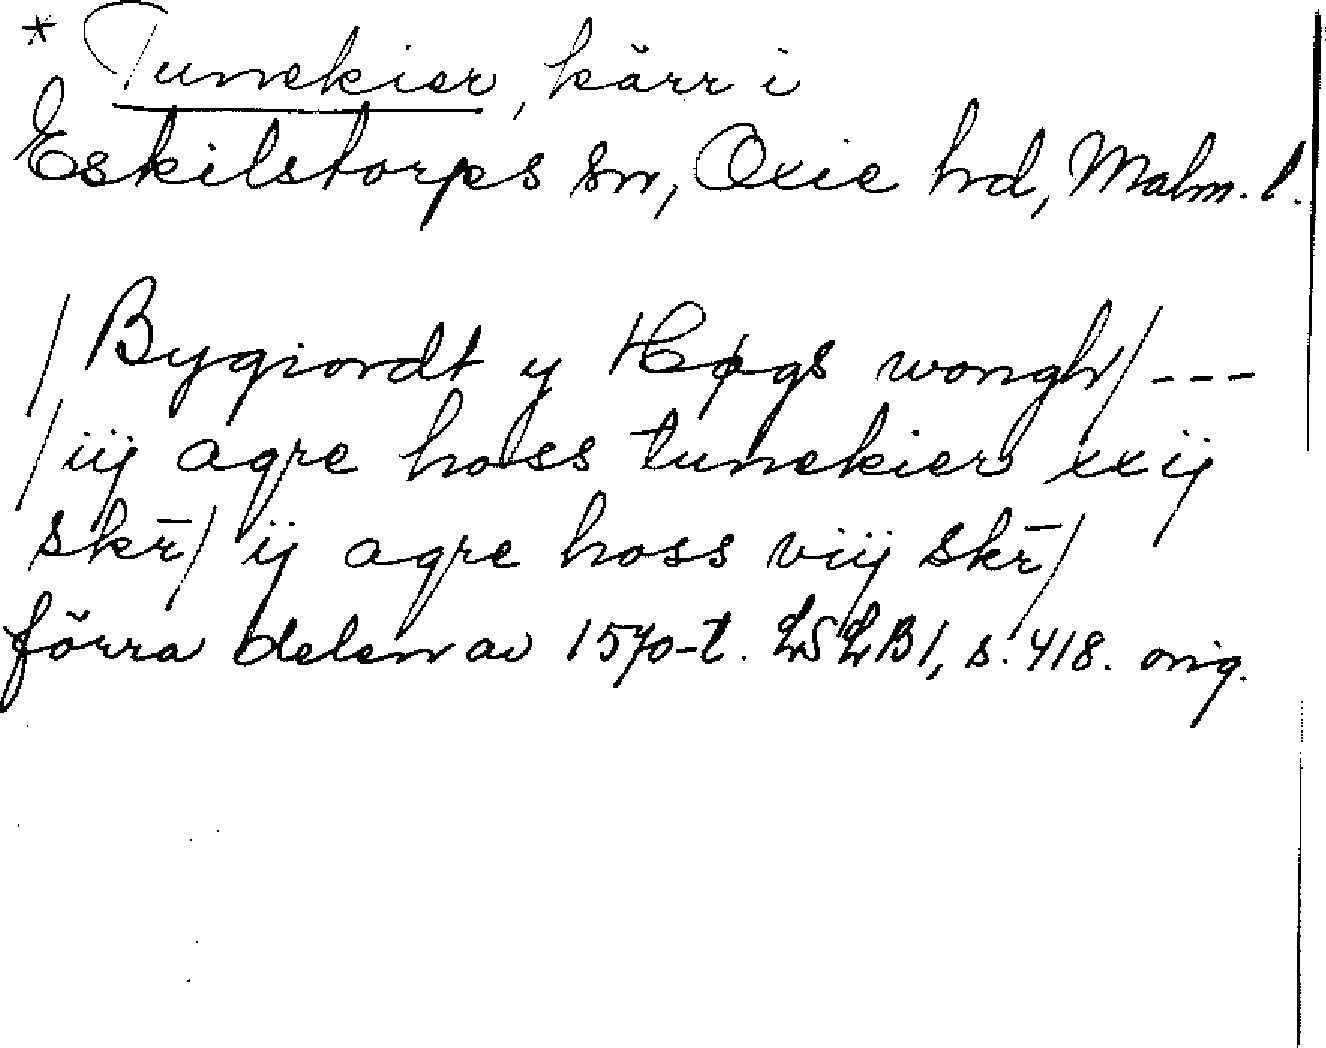 * Tunekier, kärr i
Eskilstorps sn, Oxie hd, Malm. l.
/ Bygiordt y Høgs wongh/ ---
/ iij agre hoss tunekier xxij
skr̄/ ij agre hoss viij skr̄/
förra delen av 1570-t. LSLB1, s. 418. orig.